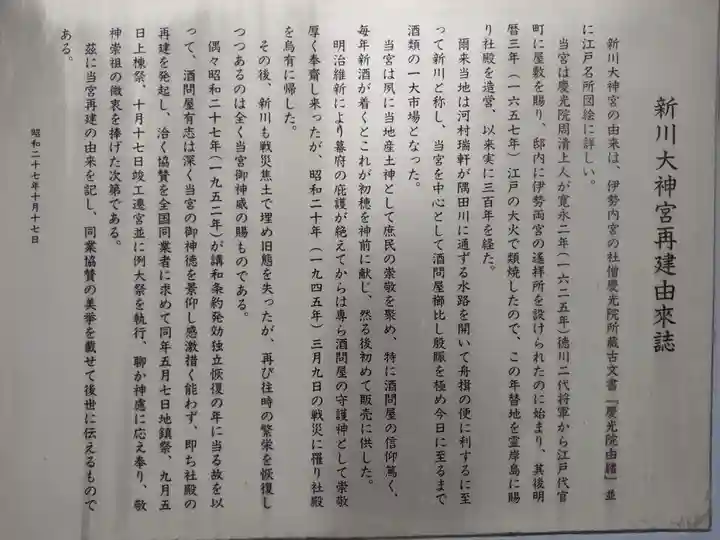 新川大神宮再建由來誌
新川大神宮の由来は、伊勢内宮の社僧慶光院所蔵古文書『慶光院由緒』並
に江戸名所図絵に詳しい。
当宮は慶光院周清上人が寛永二年（一六二五年）徳川二代将軍から江戸代官
町に屋敷を賜り、邸内に伊勢両宮の遙拝所を設けられたのに始まり、其後明
暦三年（一六五七年）江戸の大火で類焼したので、この年替地を霊岸島に賜
り社殿を造営、以来実に三百年を経た。
爾来当地は河村瑞軒が隅田川に通ずる水路を開いて舟揖の便に利するに至
って新川と称し、当宮を中心として酒問屋櫛比し殷賑を極め今日に至るまで
酒類の一大市場となった。
当宮は夙に当地産土神として庶民の崇敬を聚め、特に酒問屋の信仰篤く、
毎年新酒が着くとこれが初穂を神前に献じ、然る後初めて販売に供した。
明治維新により幕府の庇護が絶えてからは専ら酒問屋の守護神として崇敬
厚く奉齋し来ったが、昭和二十年（一九四五年）三月九日の戦災に罹り社殿
を烏有に帰した。
その後、新川も戦災焦土で埋め旧態を失ったが、再び往時の繁栄を恢復し
つつあるのは全く当宮御神威の賜ものである。
偶々昭和二十七年（一九五二年）が講和条約発効独立恢復の年に当る故を以
って、酒問屋有志は深く当宮の御神徳を景仰し感激措く能わず、即ち社殿の
再建を発起し、洽く協賛を全国同業者に求めて同年五月七日地鎮祭、九月五
日上棟祭、十月十七日竣工遷宮並に例大祭を執行、聊か神慮に応え奉り、敬
神崇祖の微衷を捧げた次第である。
茲に当宮再建の由来を記し、同業協賛の美挙を載せて後世に伝えるもので
ある。
昭和二十七年十月十七日